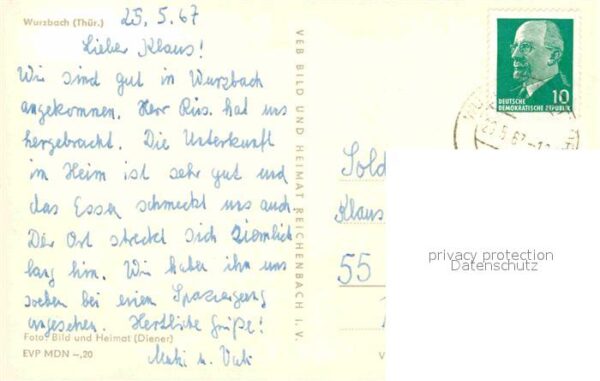 Wurzbach (Thür.) 25.5.67
Lieber Klaus!
Wir sind gut in Wurzbach
angekommen. Herr Rus. hat uns
hergebracht. Die Unterkunft
im Heim ist sehr gut und
das Essen schmeckt uns auch.
Der Ort streckt sich ziemlich
lang hin. Wir haben ihn uns
soeben bei einem Spaziergang
angesehen. Herzliche Grüße!
Foto: Bild und Heimat (Diener)
EVP MDN –,20
Mutti u. Vati
VEB BILD UND HEIMAT REICHENBACH i. V.
10
DEUTSCHE
DEMOKRATISCHE REPUBLIK
Sold
Klaus
55
privacy protection
Datenschutz
V